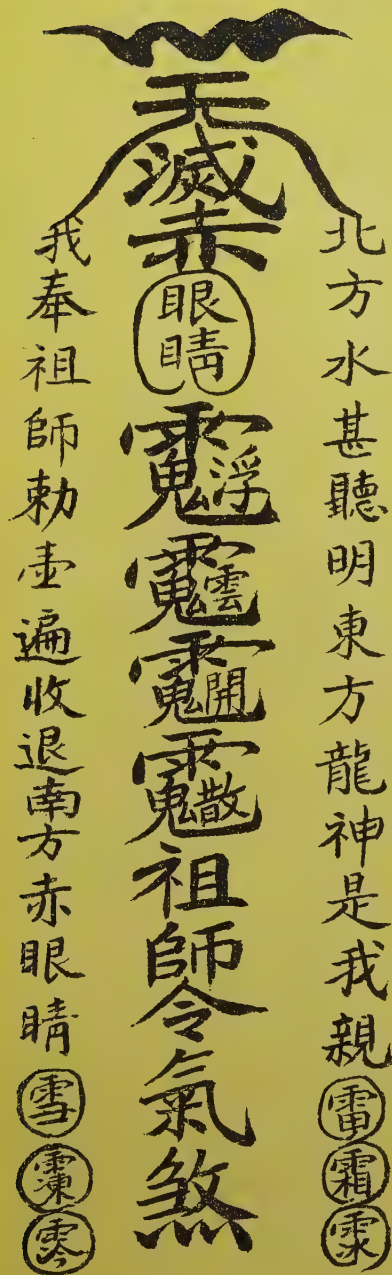 北方水甚聽明東方龍神是我親雷霜
天滅赤眼睛
浮
雲
開
散
祖師令氣煞
我奉祖師勅壺遍收退南方赤眼睛雪